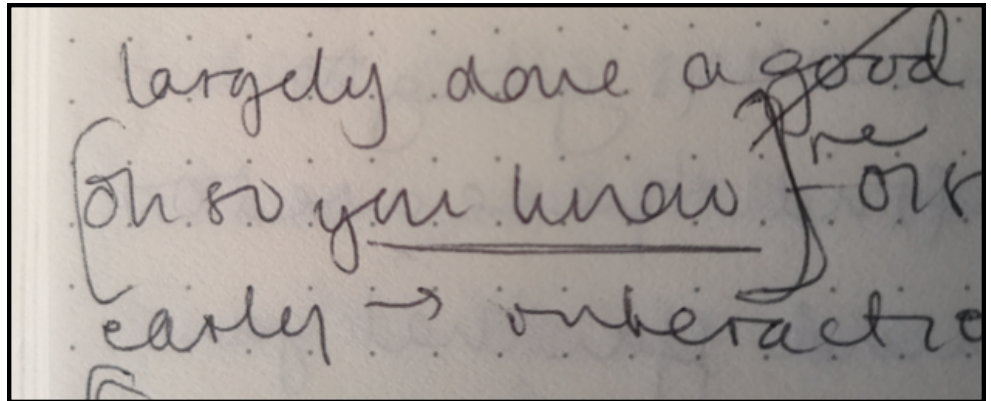 largely done a good
[oh so you know] re
early → interactio